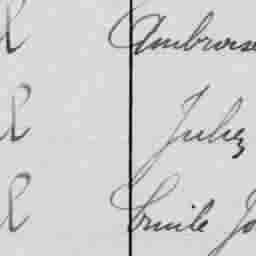 l Ambroise
l Jules
l Emile Jo